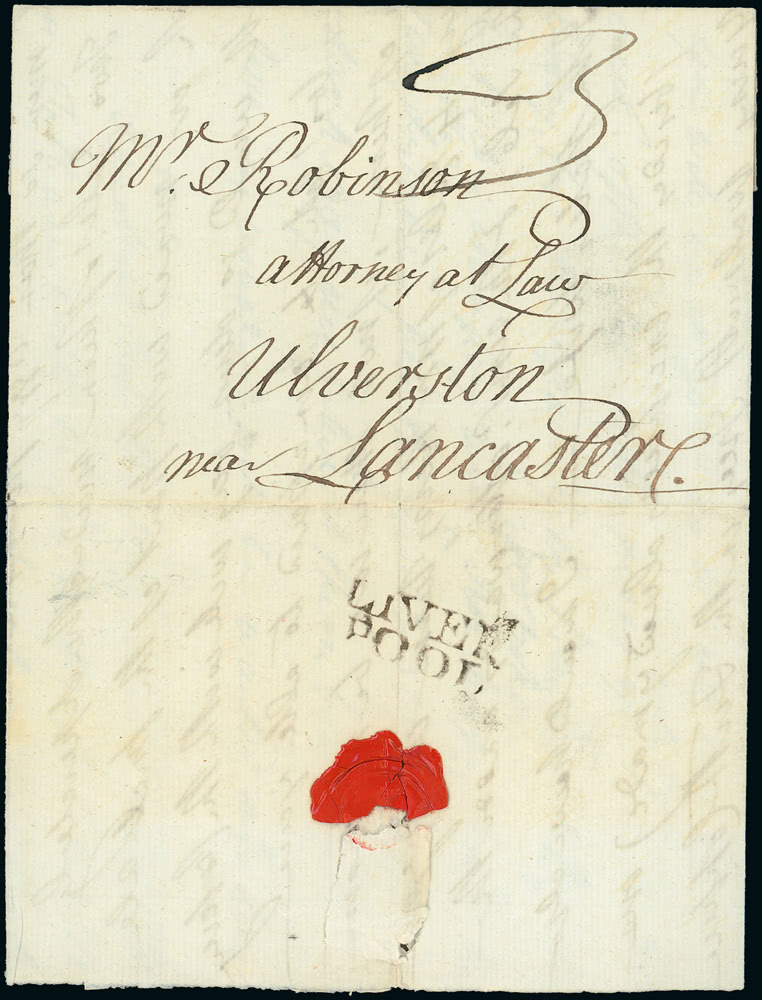 3
Mr. Robinson
attorney at Law
Ulverston
near Lancaster.
LIVER
POOL